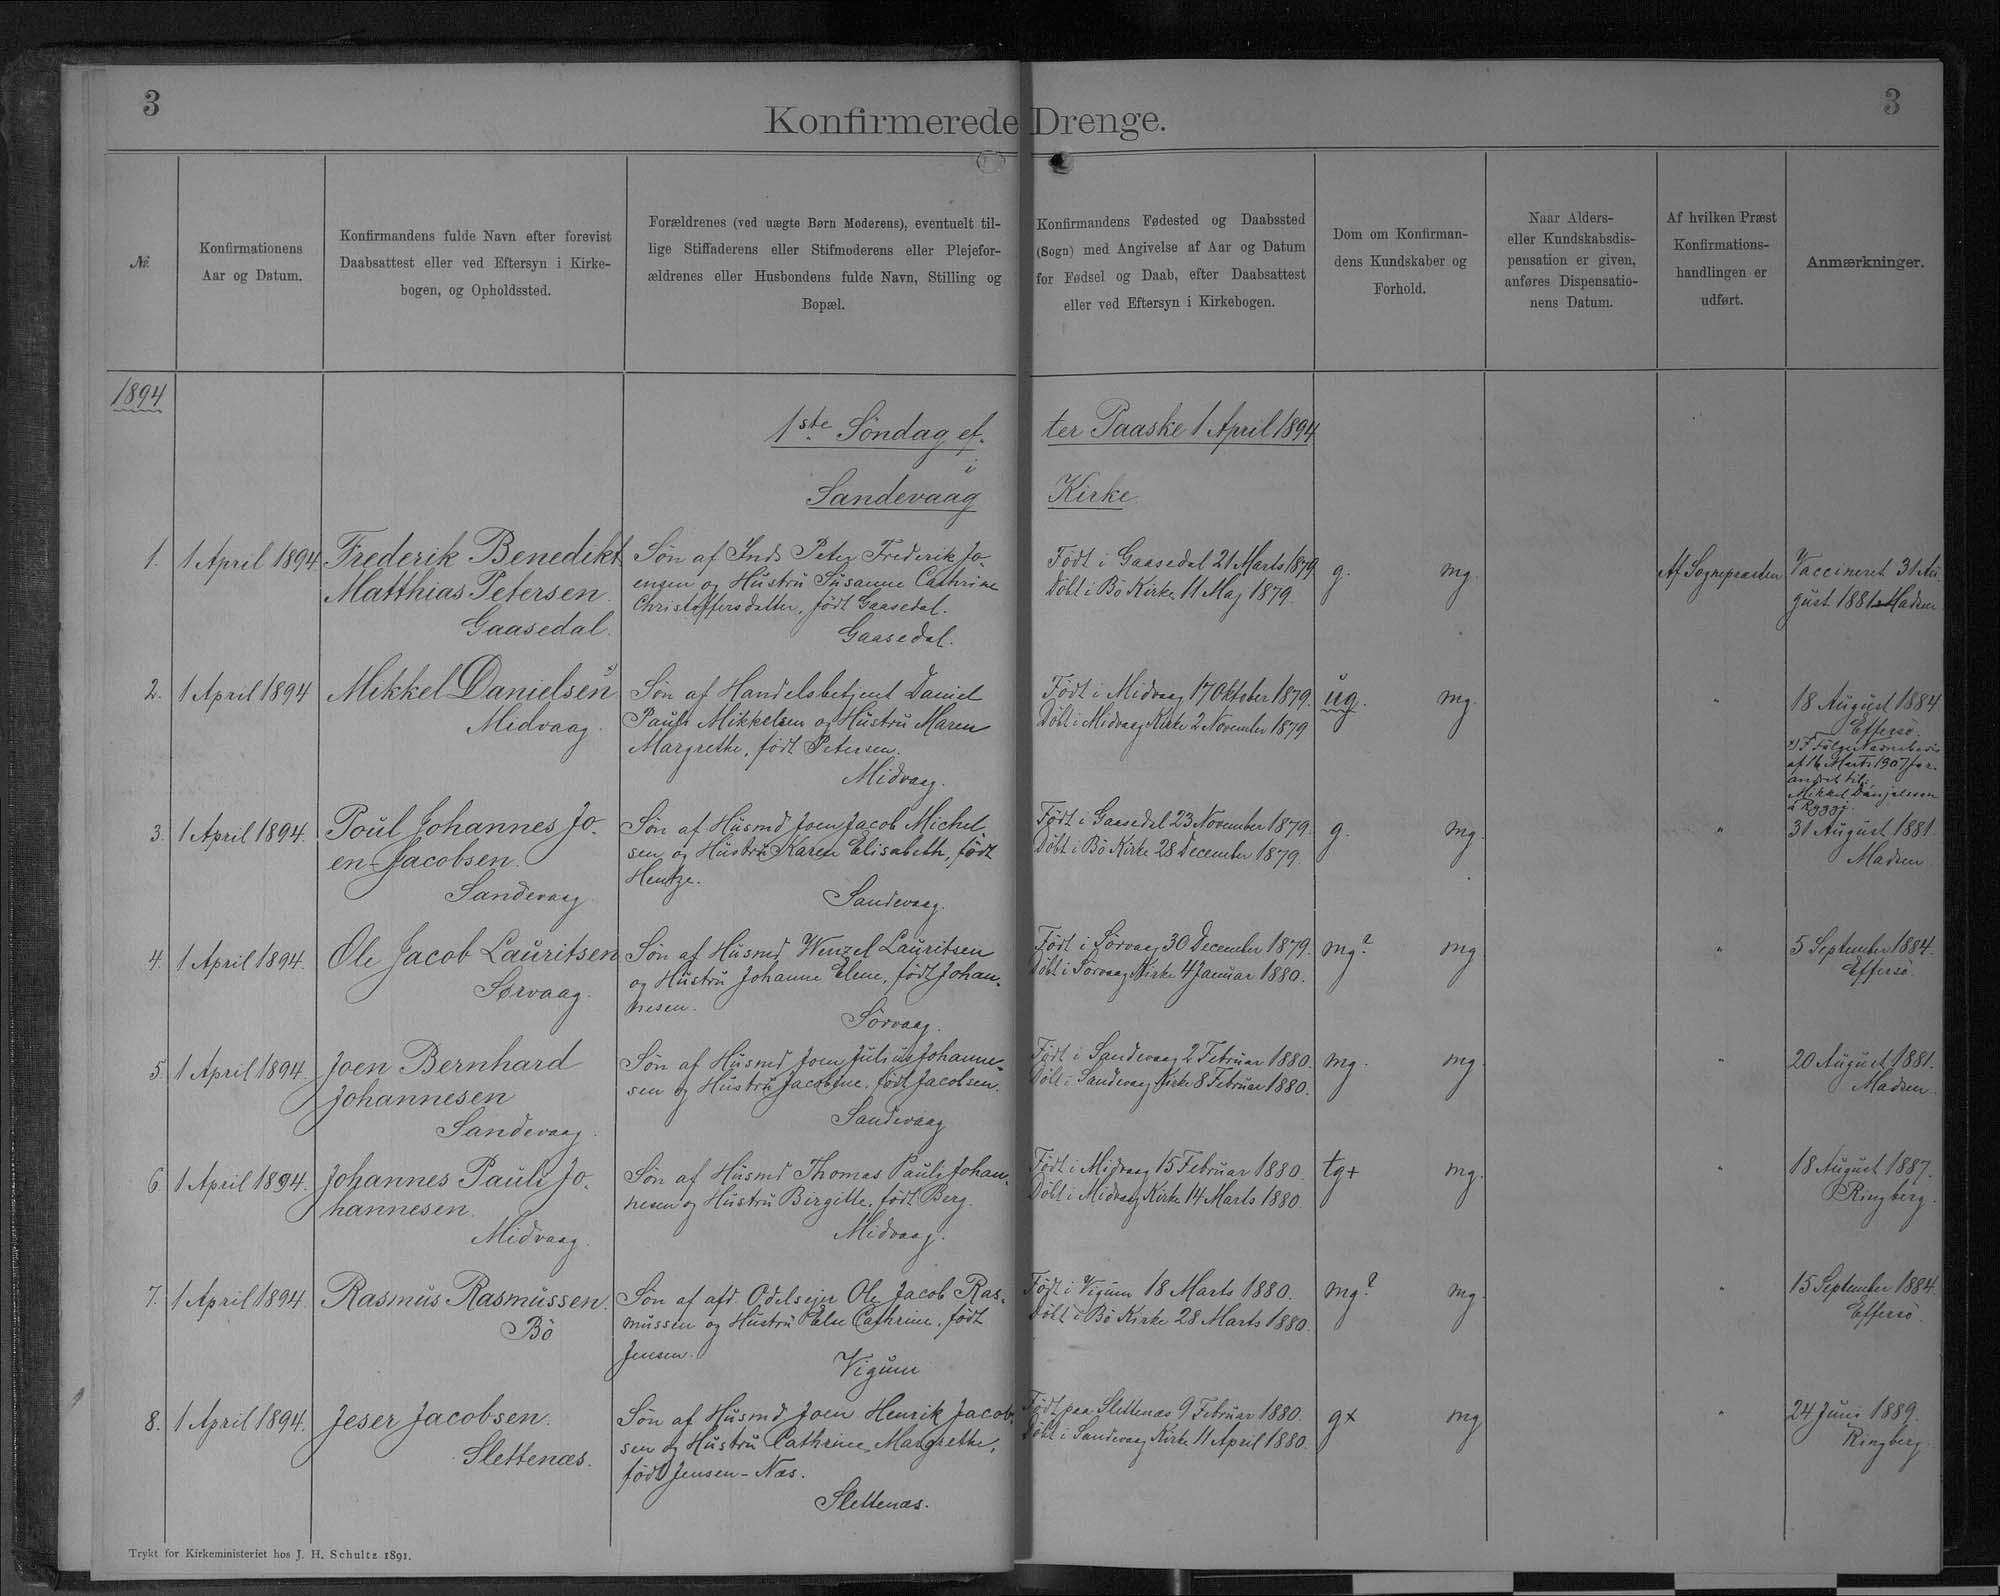 3
3
Konfirmerede Drenge.
№.
Konfirmationens
Aar og Datum.
Konfirmandens fulde Navn efter forevist
Daabsattest eller ved Eftersyn i Kirke-
bogen, og Opholdssted.
Forældrenes (ved uægte Børn Moderens), eventuelt til-
lige Stiffaderens eller Stifmoderens eller Plejefor-
ældrenes eller Husbondens fulde Navn, Stilling og
Bopæl.
Konfirmandens Fødested og Daabssted
(Sogn) med Angivelse af Aar og Datum
for Fødsel og Daab, efter Daabsattest
eller ved Eftersyn i Kirkebogen.
Dom om Konfirman-
dens Kundskaber og
Forhold.
Naar Alders-
eller Kundskabsdis-
pensation er given,
anføres Dispensatio-
nens Datum.
Af hvilken Præst
Konfirmations-
handlingen er
udført.
Anmærkninger.
1894
1ste Söndag ef-
ter Paaske 1 April 1894
i
Sandevaag Kirke
1.
1 April 1894
Frederik Benedikt
Matthias Petersen.
Gaasedal.
Sön af Inds Peter Frederik Jo-
ensen og Hustru Susanne Cathrine
Christoffersdatter, født Gaasedal.
Gaasedal.
Födt i Gaasedal 21 Marts 1879
Döbt i Bö Kirke 11 Maj 1879.
g.
mg.
Af Sognepræsten
Vaccineret 31 Au-
gust 1881 Madsen
2.
1 April 1894
Mikkel Danielsen
Midvaag.
Sön af Handelsbetjent Daniel
Pauli Mikkelsen og Hustru Maren
Margrethe, födt Petersen.
Midvaag.
Födt i Midvaag 17 Oktober 1879.
Döbt i Midvaag Kirke 2 November 1879
ug.
mg.
"
18 August 1884
Effersö.
I Fölge Navnebevis
af 16 Marts 1907 for-
andret til
Mikkel Dánjalsson
á Ryggi.
3.
1 April 1894.
Poul Johannes Jo-
en Jacobsen.
Sandevaag
Sön af Husmd Joen Jacob Michel
sen og Hustru Karen Elisabeth, födt
Hentze.
Sandevaag.
Födt i Gaasedal 23 November 1879.
Döbt i Bö Kirke 28 December 1879.
g.
mg.
"
31 August 1881.
Madsen
4.
1 April 1894.
Ole Jacob Lauritsen
Sørvaag.
Sön af Husmd Wenzel Lauritsen
og Hustru Johanne Elene, födt Johan-
nesen.
Sörvaag.
Födt i Sörvaag 30 December 1879.
Döbt i Sörvaag Kirke 4 Januar 1880.
mg?
mg
"
5 September 1884.
Effersö.
5
1 April 1894.
Joen Bernhard
Johannesen
Sandevaag.
Sön af Husmd Joen Julius Johanne-
sen og Hustru Jacobine, födt Jacobsen.
Sandevaag
Födt i Sandevaag 2 Februar 1880.
Döbt i Sandevaag Kirke 8 Februar 1880.
mg.
mg.
"
20 August 1881.
Madsen.
6
1 April 1894.
Johannes Pauli Jo-
hannesen.
Midvaag.
Sön af Husmd Thomas Pauli Johan-
nesen og Hustru Birgitte, födt Berg.
Midvaag.
Födt i Midvaag 15 Februar 1880.
Döbt i Midvaag Kirke 14 Marts 1880.
tg+
mg.
"
18 August 1887.
Ringberg.
7.
1 April 1894.
Rasmus Rasmussen.
Bö
Sön af afd. Odelsejer Ole Jacob Ras-
mussen og Hustru Else Cathrine, födt
Jensen.
Vigum
Födt i Vigum 18 Marts 1880.
Döbt i Bö Kirke 28 Marts 1880.
mg?
mg.
"
15 September 1884.
Effersö.
8.
1 April 1894.
Jeser Jacobsen.
Slettenæs.
Sön af Husmd Joen Henrik Jacob-
sen og Hustru Cathrine Margrethe,
födt Jensen-Næs.
Slettenæs.
Födt paa Slettenæs 9 Februar 1880.
Döbt i Sandevaag Kirke 11 April 1880.
g+
mg
"
24 Juni 1889.
Ringberg.
Trykt for Kirkeministeriet hos J. H. Schultz 1891.